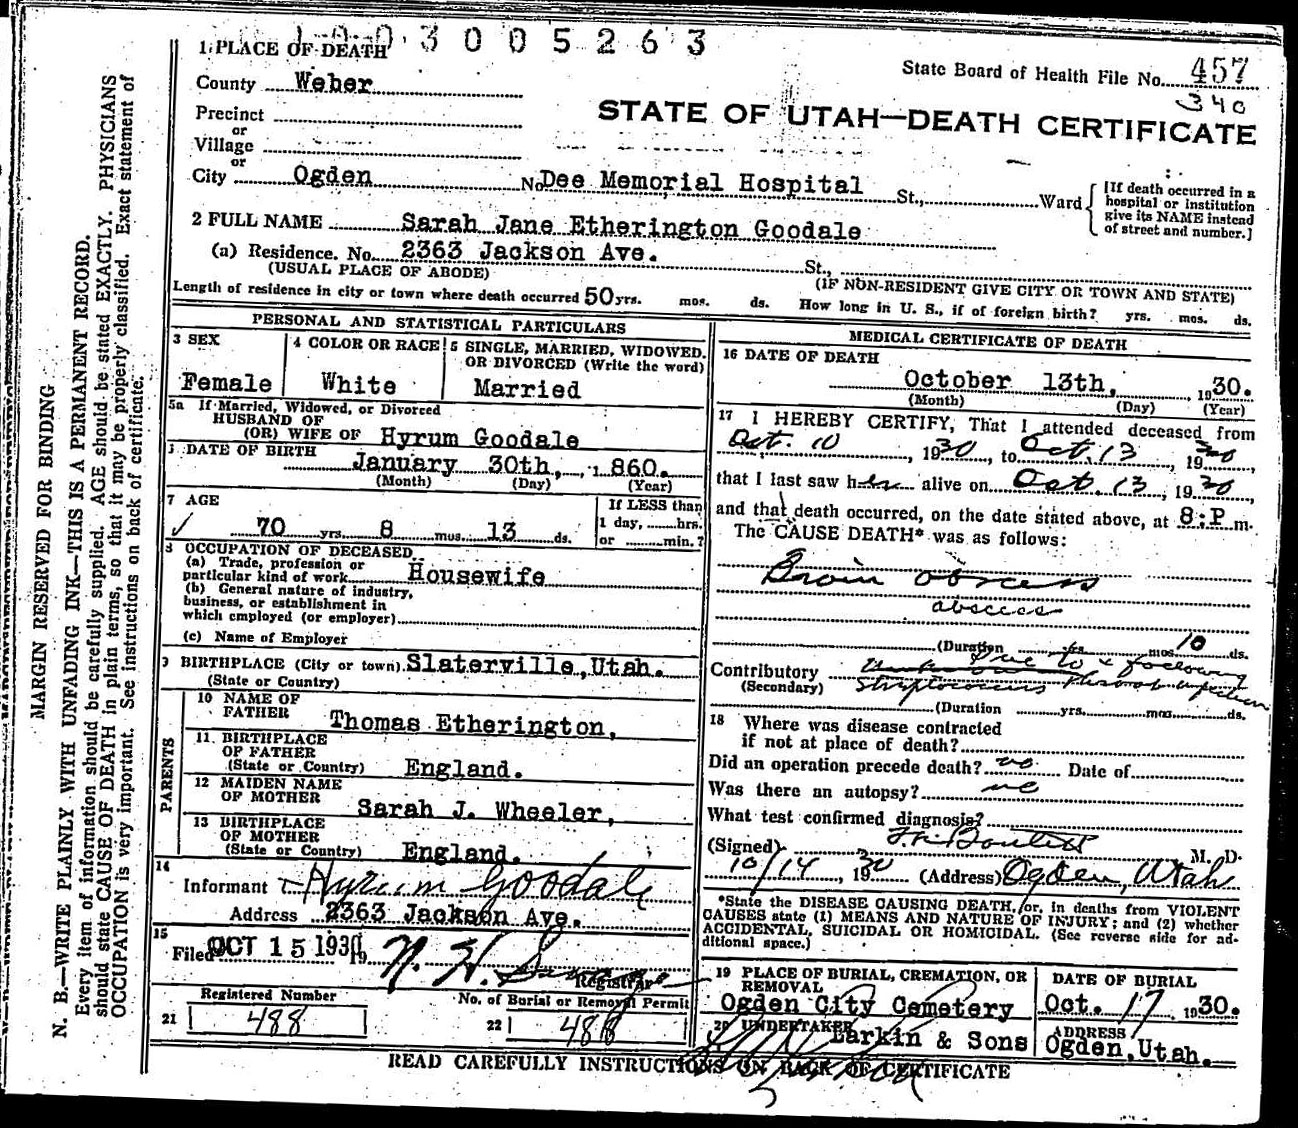 1003005263
1 PLACE OF DEATH
State Board of Health File No. 457
340
County Weber
STATE OF UTAH—DEATH CERTIFICATE
Precinct
or
Village
or
City Ogden No. Dee Memorial Hospital St., Ward
[If death occurred in a hospital or institution give its NAME instead of street and number.]
2 FULL NAME Sarah Jane Etherington Goodale
(a) Residence. No. 2363 Jackson Ave. St.,
(USUAL PLACE OF ABODE) (IF NON-RESIDENT GIVE CITY OR TOWN AND STATE)
Length of residence in city or town where death occurred 50 yrs. mos. ds. How long in U. S., if of foreign birth? yrs. mos. ds.
PERSONAL AND STATISTICAL PARTICULARS
3 SEX
Female
4 COLOR OR RACE
White
5 SINGLE, MARRIED, WIDOWED,
OR DIVORCED (Write the word)
Married
5a If Married, Widowed, or Divorced
HUSBAND OF
(OR) WIFE OF Hyrum Goodale
DATE OF BIRTH
January 30th, 1860.
(Month) (Day) (Year)
7 AGE
70 yrs. 8 mos. 13 ds.
If LESS than
1 day, hrs.
or min.?
8 OCCUPATION OF DECEASED
(a) Trade, profession or
particular kind of work Housewife
(b) General nature of industry,
business, or establishment in
which employed (or employer)
(c) Name of Employer
9 BIRTHPLACE (City or town) Slaterville, Utah.
(State or Country)
PARENTS
10 NAME OF
FATHER Thomas Etherington,
11 BIRTHPLACE
OF FATHER
(State or Country) England.
12 MAIDEN NAME
OF MOTHER Sarah J. Wheeler,
13 BIRTHPLACE
OF MOTHER
(State or Country) England.
14
Informant Hyrum Goodale
Address 2363 Jackson Ave.
15
Filed OCT 15 1930 19 N. H. Registrar
Registered Number
21 488
No. of Burial or Removal Permit
22 488
MEDICAL CERTIFICATE OF DEATH
16 DATE OF DEATH
October 13th, 1930.
(Month) (Day) (Year)
17 I HEREBY CERTIFY, That I attended deceased from
Oct. 10, 1930, to Oct. 13, 1930,
that I last saw her alive on Oct. 13, 1930,
and that death occurred, on the date stated above, at 8:P m.
The CAUSE DEATH* was as follows:
Brain abscess
abscess
(Duration yrs. mos. 10 ds.
Contributory Due to & following
(Secondary) Streptococcus throat infection
(Duration yrs. mos. ds.
18 Where was disease contracted
if not at place of death?
Did an operation precede death? no Date of
Was there an autopsy? no
What test confirmed diagnosis?
(Signed) M. D.
10/14, 1930 (Address) Ogden, Utah
*State the DISEASE CAUSING DEATH, or, in deaths from VIOLENT
CAUSES state (1) MEANS AND NATURE OF INJURY; and (2) whether
ACCIDENTAL, SUICIDAL OR HOMICIDAL. (See reverse side for ad-
ditional space.)
19 PLACE OF BURIAL, CREMATION, OR
REMOVAL
Ogden City Cemetery
DATE OF BURIAL
Oct. 17 1930.
20 UNDERTAKER
Larkin & Sons
ADDRESS
Ogden, Utah.
READ CAREFULLY INSTRUCTIONS ON BACK OF CERTIFICATE
MARGIN RESERVED FOR BINDING
N. B.—WRITE PLAINLY WITH UNFADING INK—THIS IS A PERMANENT RECORD.
Every item of information should be carefully supplied. AGE should be stated EXACTLY. PHYSICIANS
should state CAUSE OF DEATH in plain terms, so that it may be properly classified. Exact statement of
OCCUPATION is very important. See instructions on back of certificate.